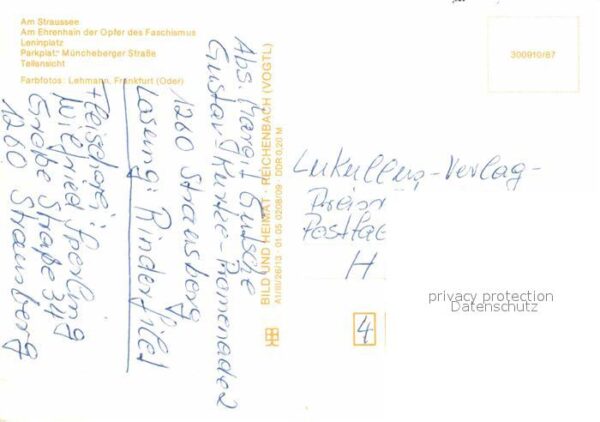 Am Straussee
Am Ehrenhain der Opfer des Faschismus
Leninplatz
Parkplatz Müncheberger Straße
Teilansicht
Farbfotos: Lehmann, Frankfurt (Oder)
Abs. Margit Gutsche
Gustav-Kurtze-Promenade 2
1260 Strausberg
Lösung: Rinderfilet
Fleischerei
Wilfried Sperling
Große Straße 34
1260 Strausberg
BILD UND HEIMAT · REICHENBACH (VOGTL)
A1/III/26/13 · 01 05 0208/09 · DDR 0,20 M
300910/87
Lukullus-Verlag-
Postfac
H
4
privacy protection
Datenschutz